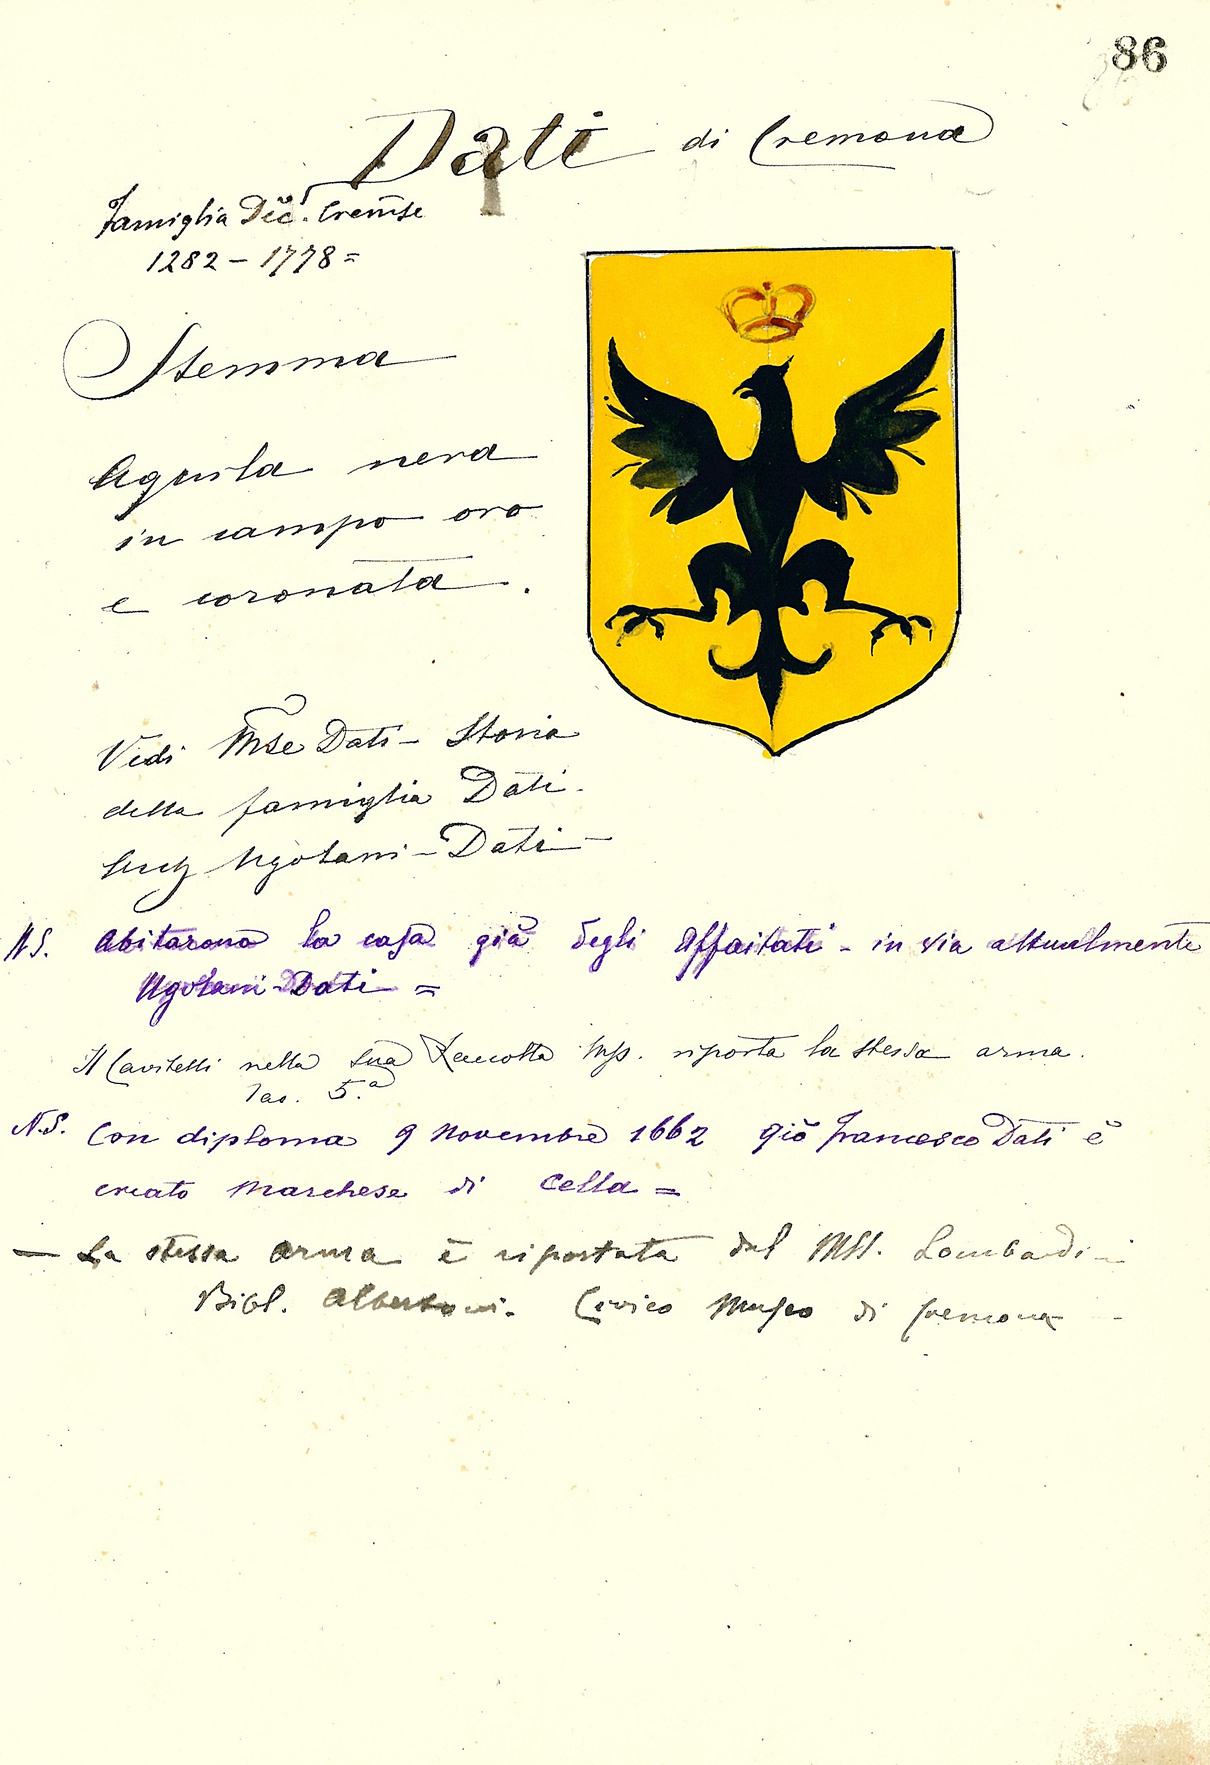 86
Dati di Cremona
Famiglia Dec. Cremse
1282 - 1778 =
Stemma
Aquila nera
in campo oro
e coronata.
Vedi Mse Dati - Storia
della famiglia Dati.
Ugolani - Dati -
N.S. Abitarono la casa già degli Affaitati - in via attualmente
Ugolani - Dati =
Il Cavitelli nella sua Raccolta Mss. riporta la stessa arma.
Tav. 5.a
N.S. Con diploma 9 Novembre 1662 Giò Francesco Dati è
creato Marchese di Cella =
- La stessa arma è riportata dal MSS. Lombardini
Bibl. Albertoni. Civico Museo di Cremona -